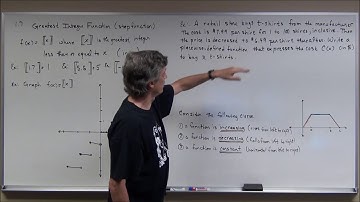 1.7 Greatest Integer Function (step function)
f(x) = [[x]] where [[x]] is the greatest integer
less than or equal to x
Ex: [[1.7]] = 1 [[5.6]] = 5
Ex: Graph f(x) = [[x]]
Ex: A retail store buys t-shirts from the manufacturer.
The cost is $7.99 per shirt for 1 to 100 shirts, inclusive. Then
the price is decreased to $6.49 per shirt thereafter. Write a
piecewise-defined function that expresses the cost C(x) (in $)
to buy x t-shirts.
Consider the following curve
① a function is increasing (rises from left to right)
② a function is decreasing (falls from left to right)
③ a function is constant (horizontal from left to right)